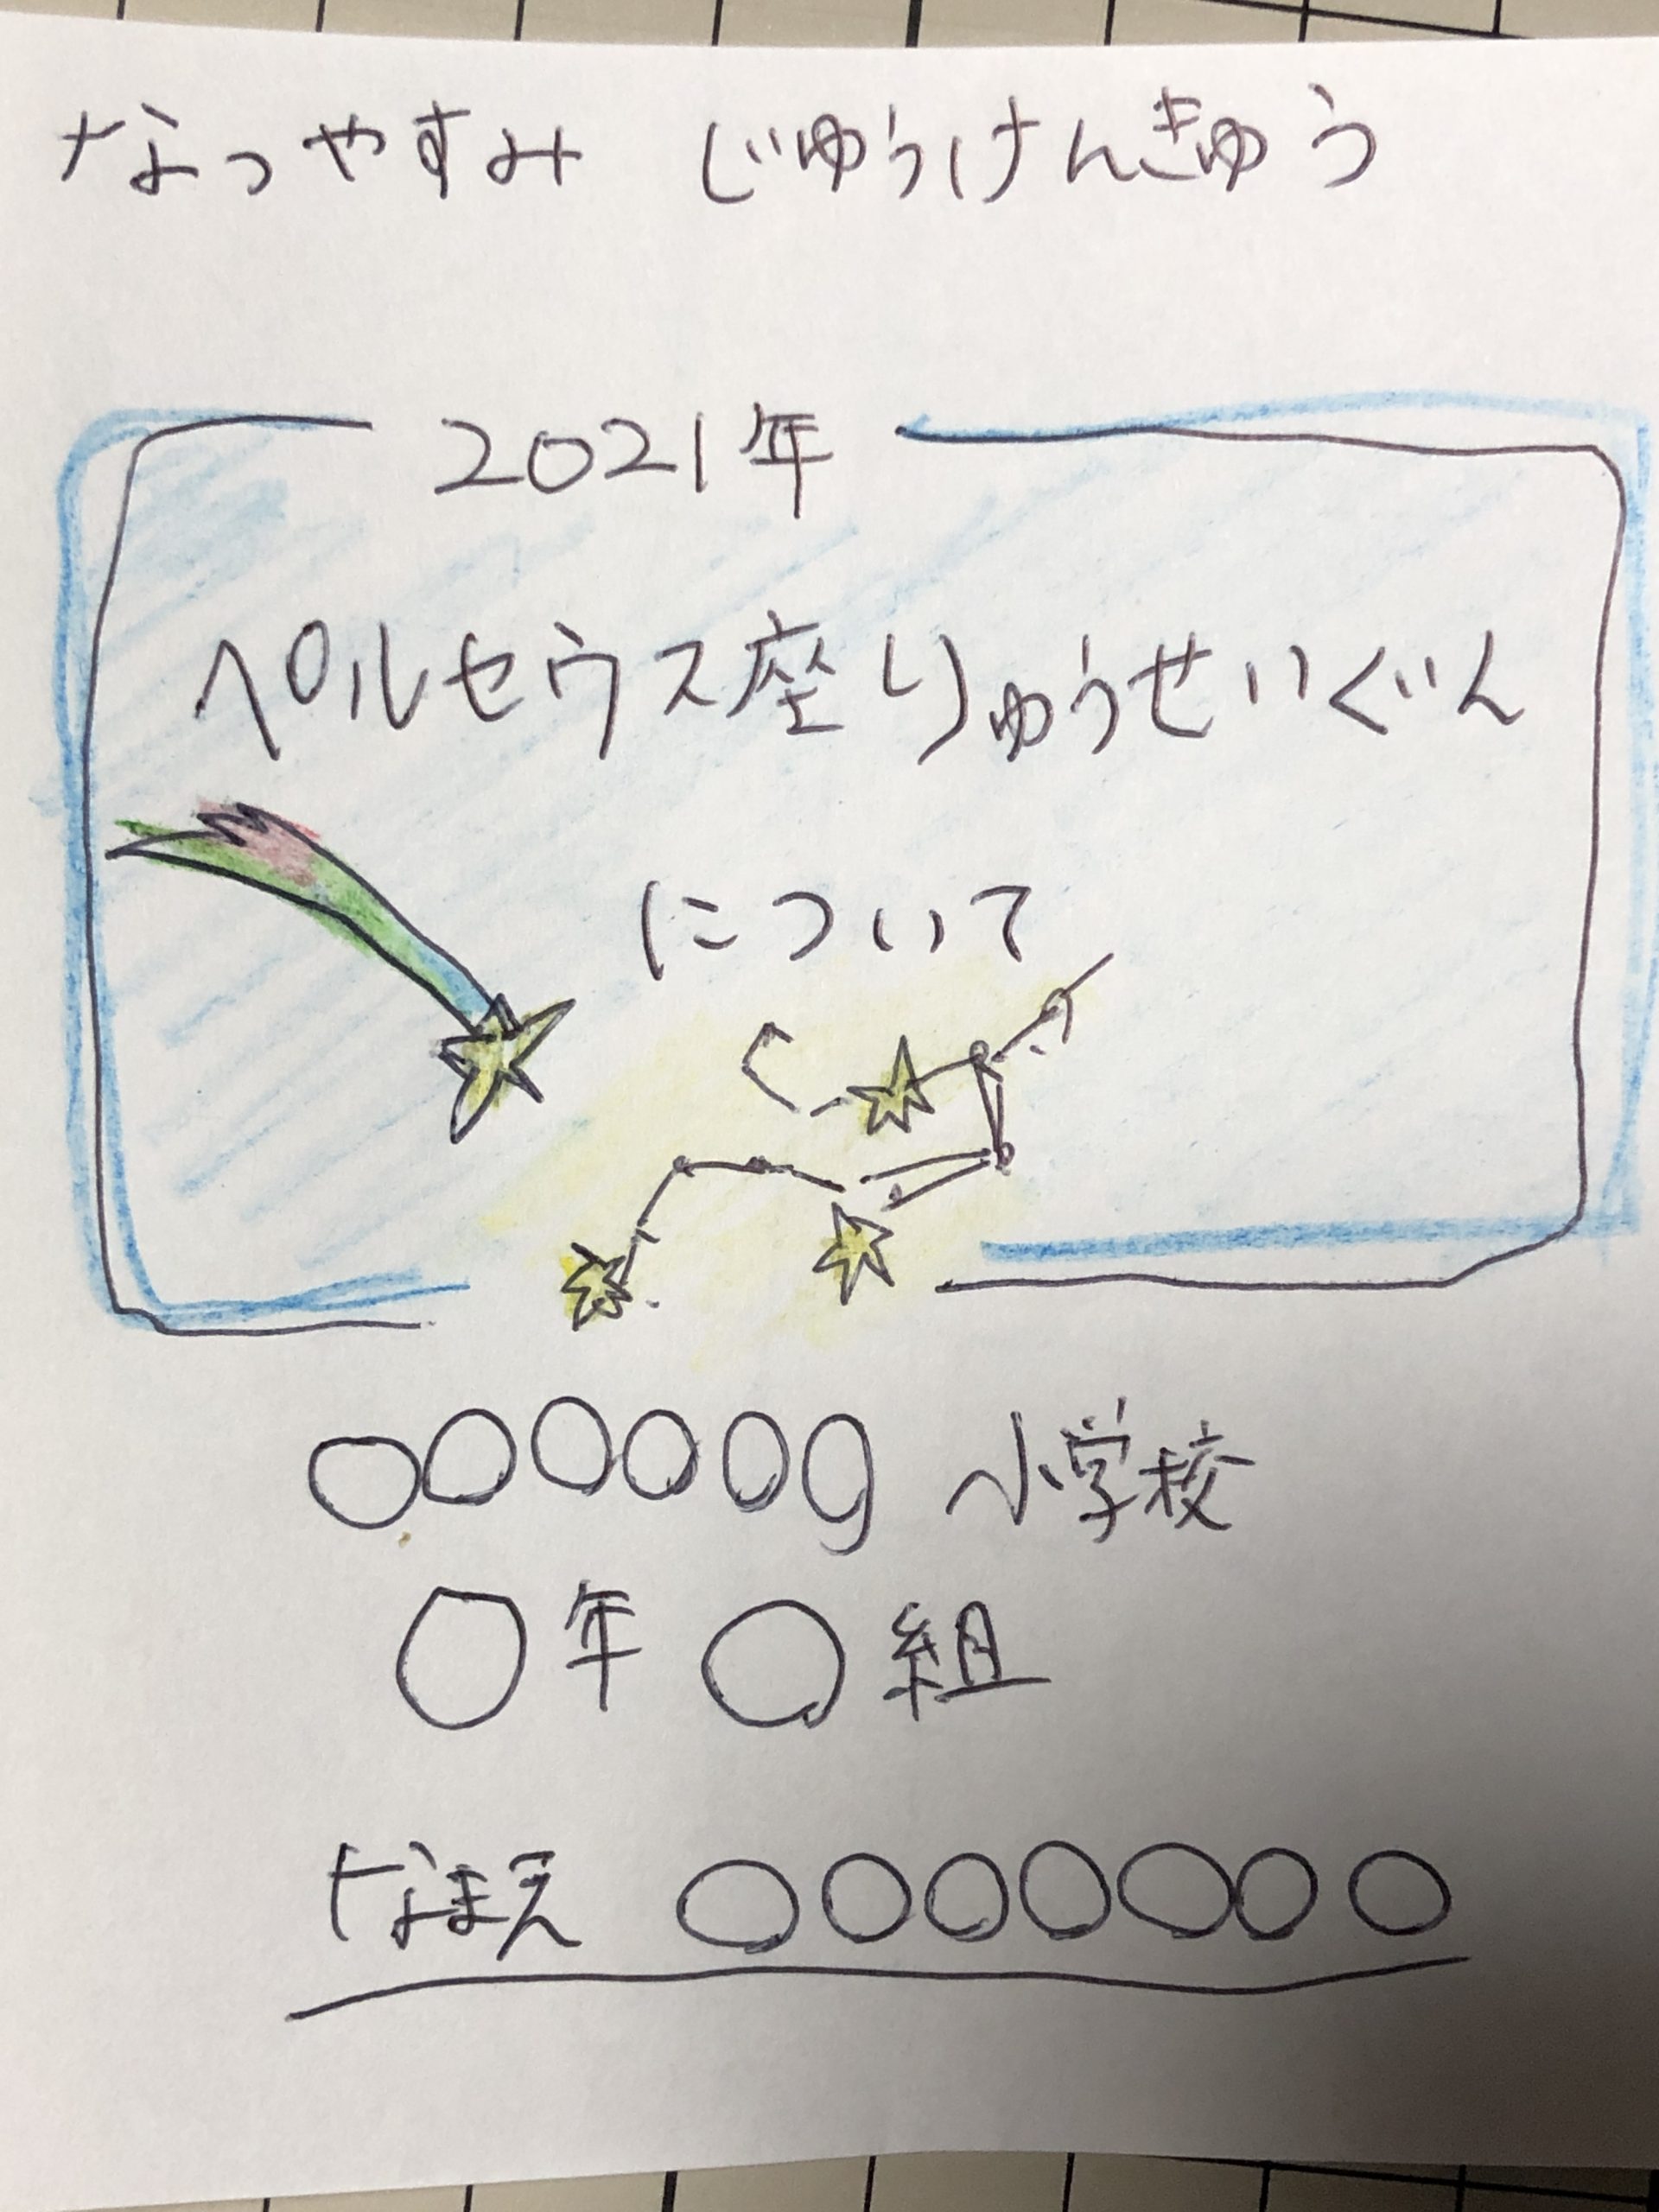 なつやすみ じゆうけんきゅう
2021年
ペルセウス座りゅうせいぐん
について
○○○○○○ 小学校
○年 ○組
なまえ ○○○○○○○